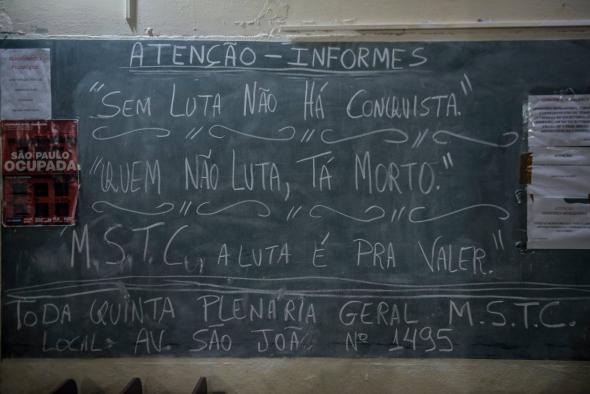 ATENÇÃO - INFORMES
"SEM LUTA NÃO HÁ CONQUISTA."
"QUEM NÃO LUTA, TÁ MORTO."
"M.S.T.C., A LUTA É PRA VALER."
TODA QUINTA PLENÁRIA GERAL M.S.T.C.
LOCAL: AV. SÃO JOÃO Nº 1495
SÃO PAULO
OCUPADA